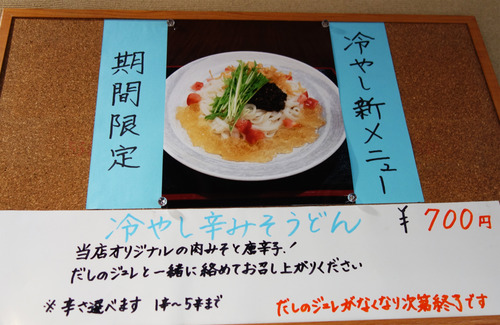 冷やし新メニュー
期間限定
冷やし辛みそうどん ¥700円
当店オリジナルの肉みそと唐辛子!
だしのジュレと一緒に絡めてお召し上がりください
※辛さ選べます 1辛~5辛まで
だしのジュレがなくなり次第終了です